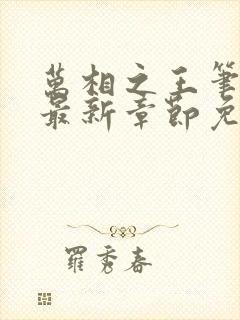 萬相之王筆
最新章節免
羅秀春